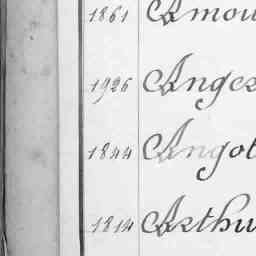 1861 Amou
1926 Anges
1844 Angot
1814 Arthu